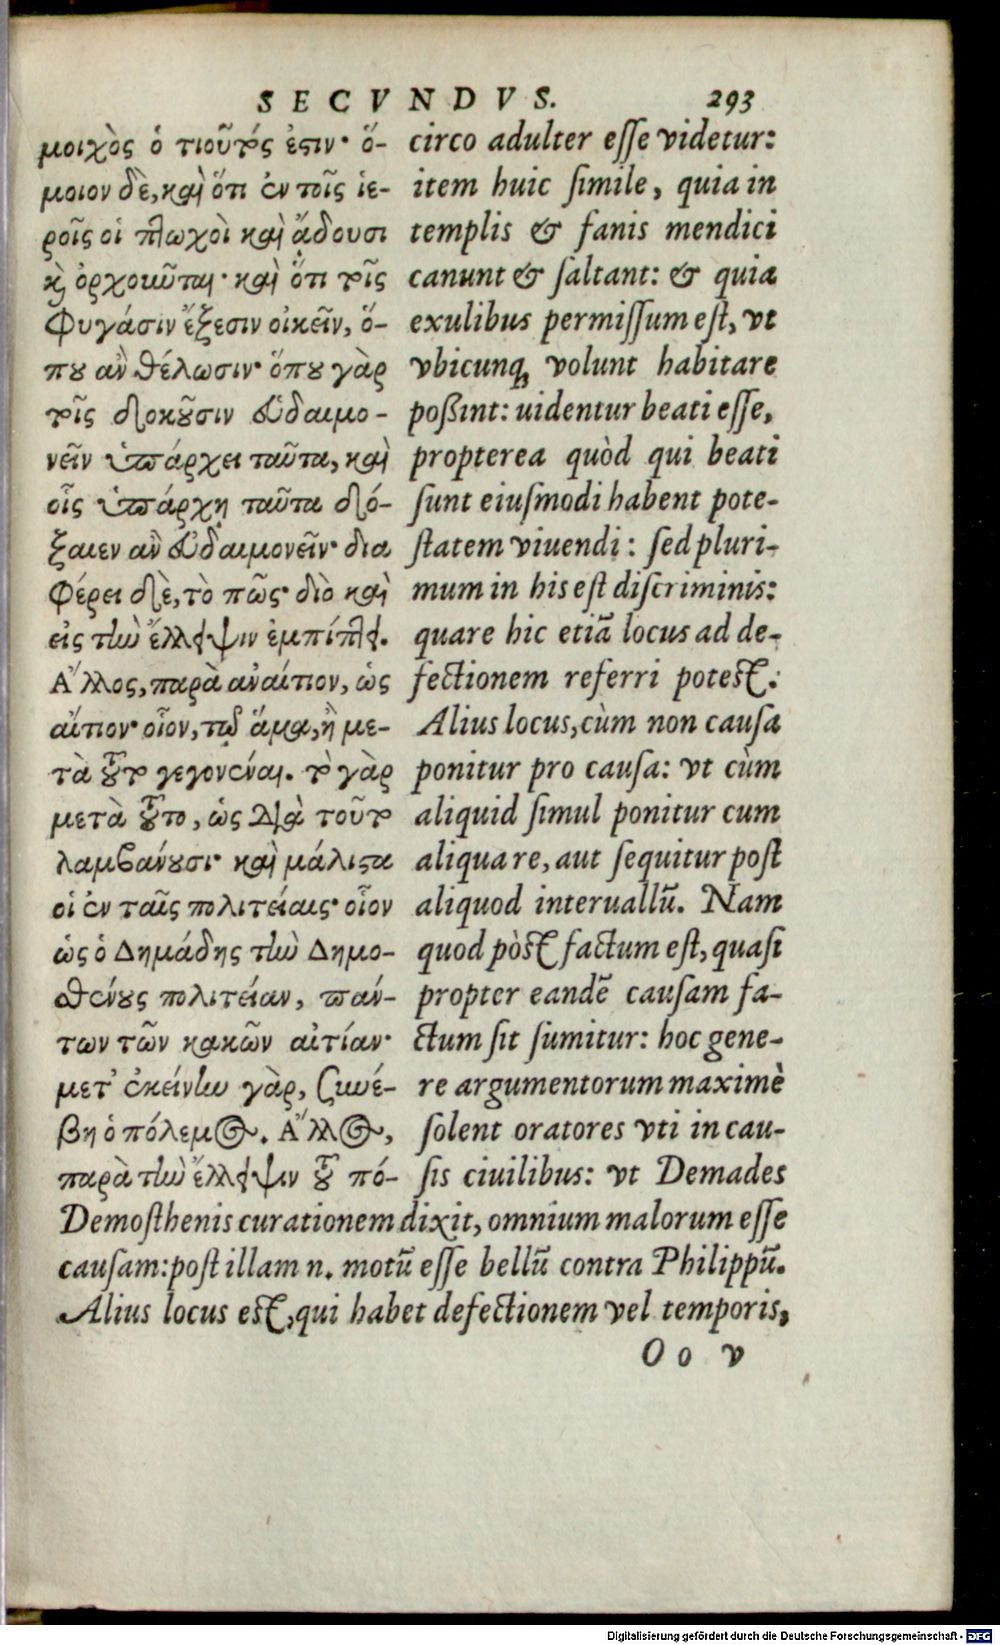 SECVNDVS. 293
μοιχὸς ὁ τιοῦτός ἐστιν· ὅ-
μοιον δὲ, καὶ ὅτι ἐν τοῖς ἱε-
ροῖς οἱ πτωχοὶ καὶ ᾄδουσι
κὶ ὀρχοιῶται· καὶ ὅτι τοῖς
φυγάσιν ἔξεστιν οἰκεῖν, ὅ-
που ἂν θέλωσιν· ὅπου γὰρ
τοῖς δοκοῦσιν εὐδαιμο-
νεῖν ὑπάρχει ταῦτα, καὶ
οἷς ὑπάρχη ταῦτα δό-
ξαιεν ἂν εὐδαιμονεῖν· δια
φέρει δὲ, τὸ πῶς· διὸ καὶ
εἰς τὴν ἔλλειψιν ἐμπίπτει.
Ἄλλος, παρὰ ἀναίτιον, ὡς
αἴτιον· οἷον, τῷ ἅμα, ἢ με-
τὰ τοῦτο γεγονέναι. τὸ γὰρ
μετὰ τοῦτο, ὡς διὰ τοῦτο
λαμβάνουσι· καὶ μάλιστα
οἱ ἐν ταῖς πολιτείαις· οἷον
ὡς ὁ Δημάδης τὴν Δημο-
θένους πολιτείαν, πάν-
των τῶν κακῶν αἰτίαν·
μετ' ἐκείνην γὰρ, συνέ-
βη ὁ πόλεμος. Ἄλλος,
παρὰ τὴν ἔλλειψιν τοῦ πό-
circo adulter esse videtur:
item huic simile, quia in
templis & fanis mendici
canunt & saltant: & quia
exulibus permissum est, vt
vbicunq; volunt habitare
poßint: uidentur beati esse,
propterea quòd qui beati
sunt eiusmodi habent pote-
statem viuendi: sed pluri-
mum in his est discriminis:
quare hic etiã locus ad de-
fectionem referri potest.
Alius locus, cùm non causa
ponitur pro causa: vt cùm
aliquid simul ponitur cum
aliqua re, aut sequitur post
aliquod interuallũ. Nam
quod pòst factum est, quasi
propter eandẽ causam fa-
ctum sit sumitur: hoc gene-
re argumentorum maximè
solent oratores vti in cau-
sis ciuilibus: vt Demades
Demosthenis curationem dixit, omnium malorum esse
causam: post illam n. motũ esse bellũ contra Philippũ.
Alius locus est, qui habet defectionem vel temporis,
Oo v
Digitalisierung gefördert durch die Deutsche Forschungsgemeinschaft - DFG